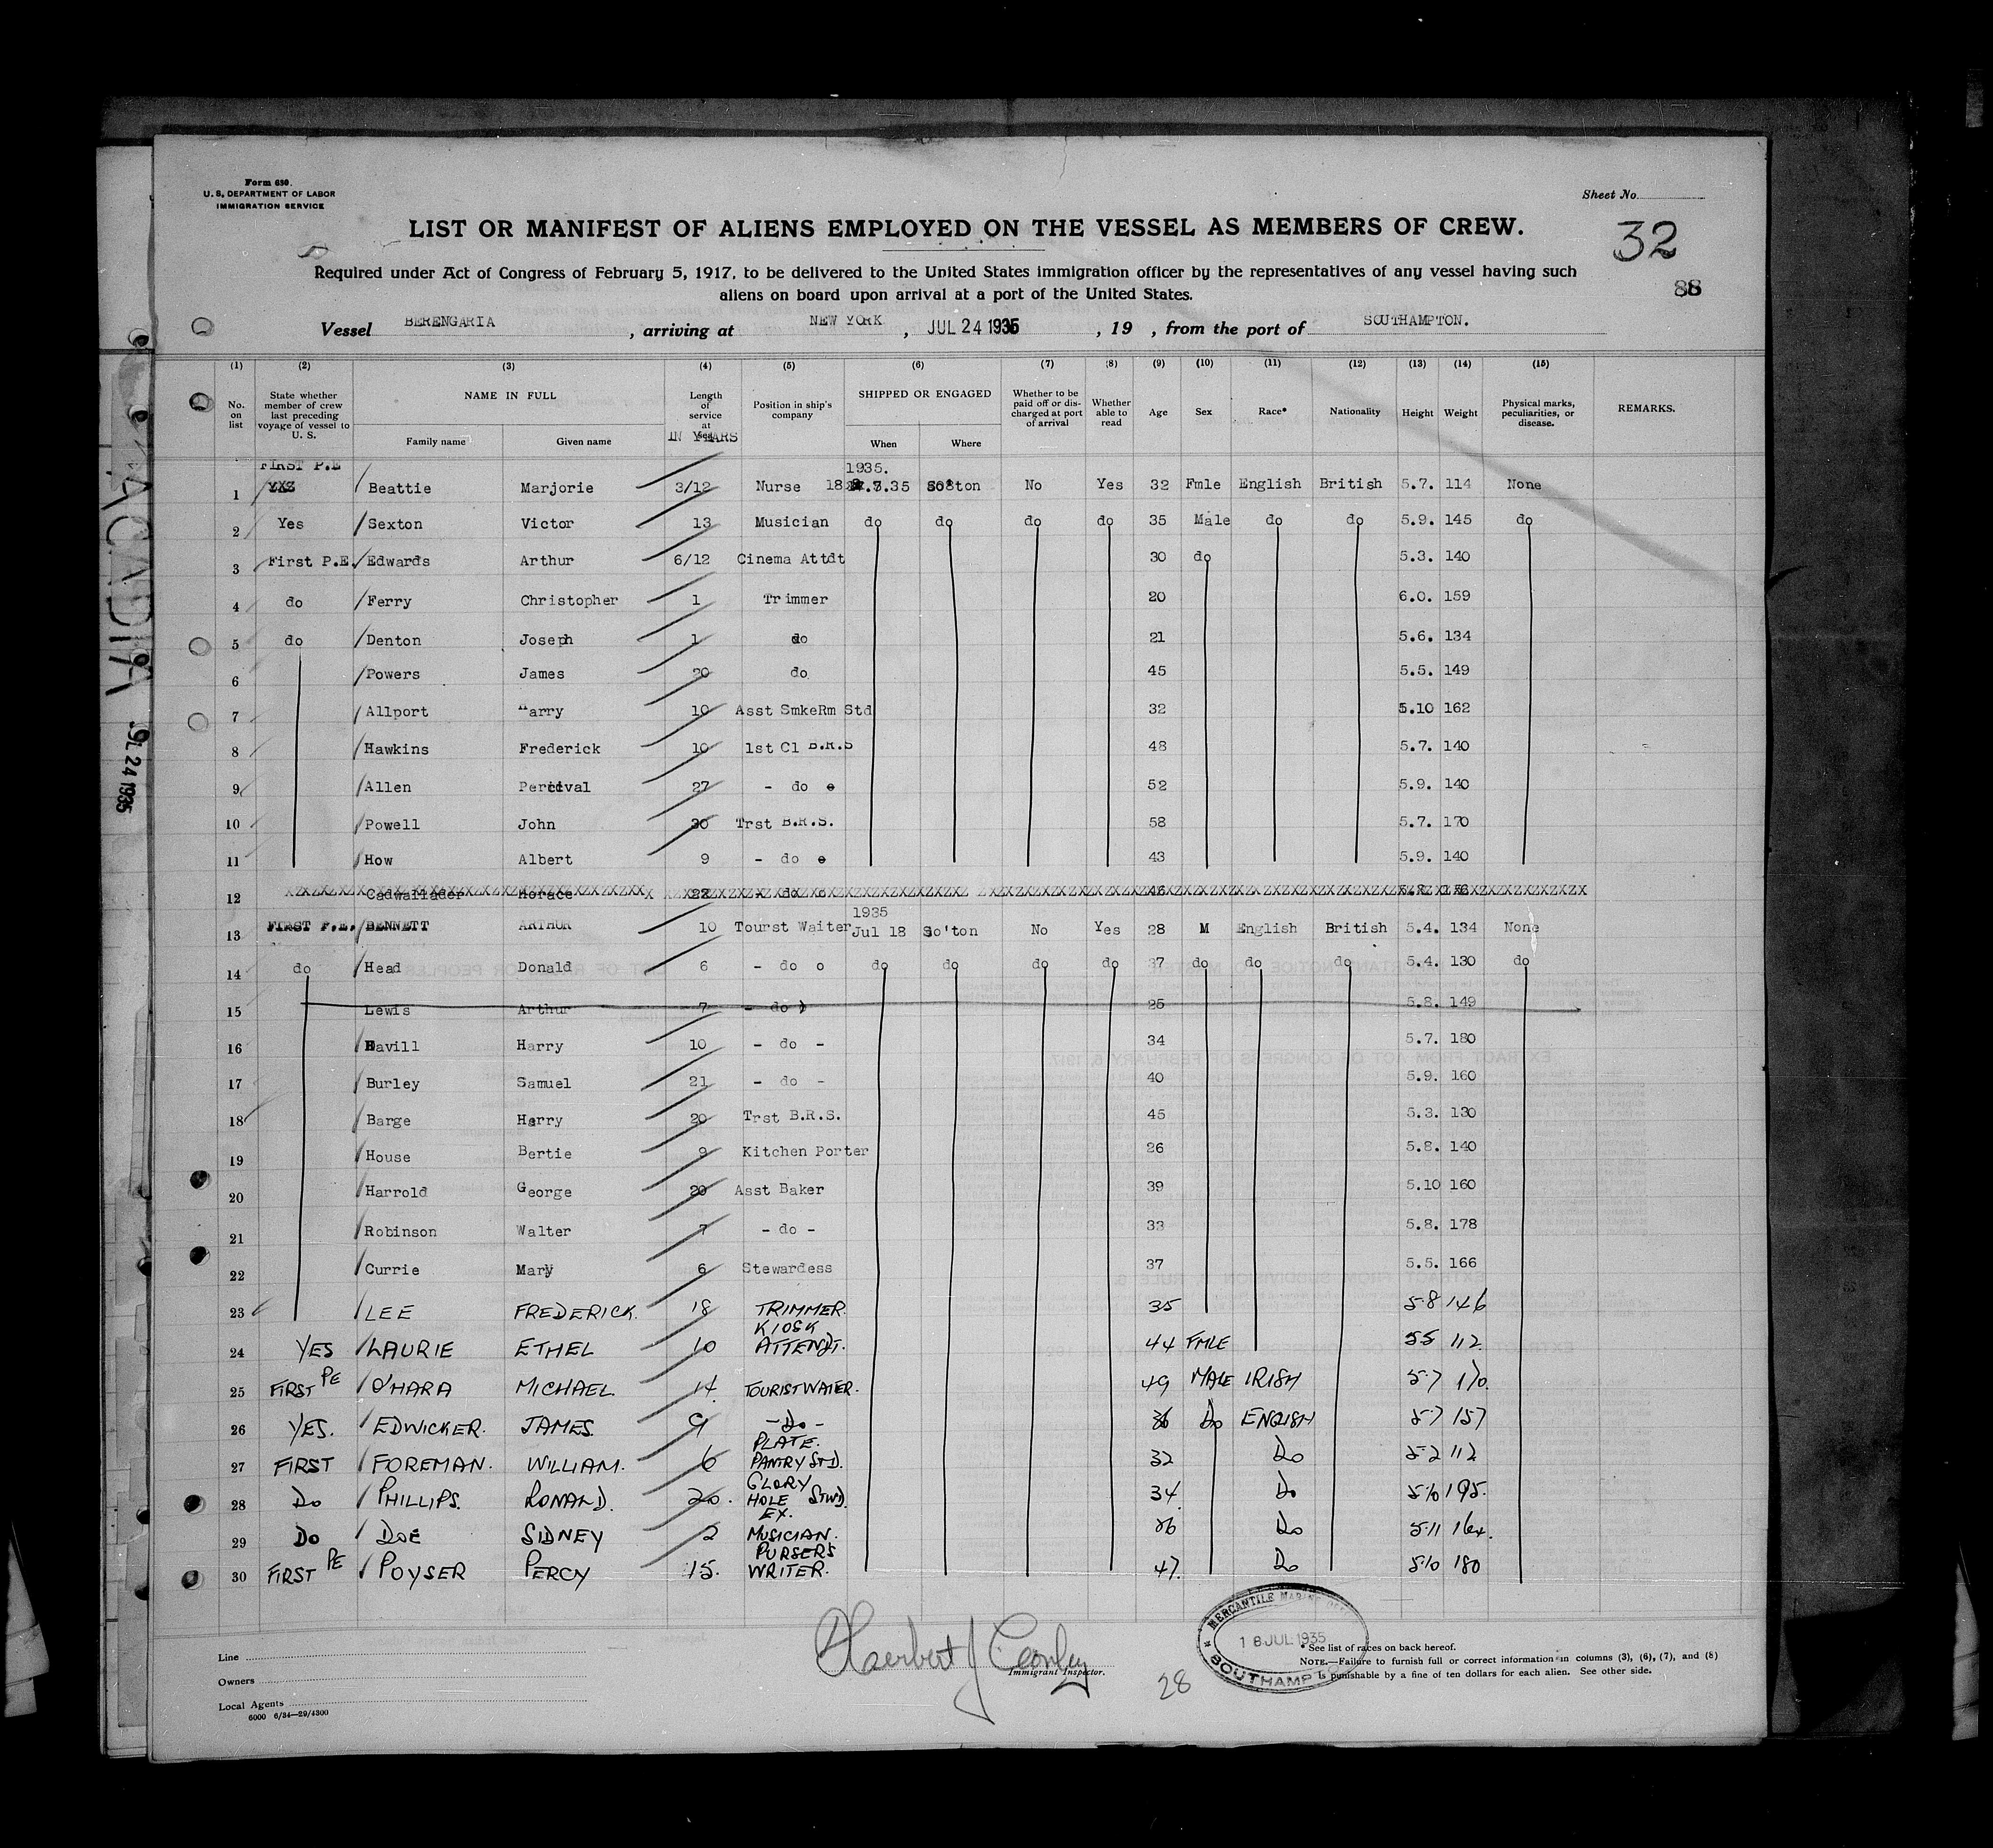 Form 630.
U. S. DEPARTMENT OF LABOR
IMMIGRATION SERVICE
Sheet No.
LIST OR MANIFEST OF ALIENS EMPLOYED ON THE VESSEL AS MEMBERS OF CREW.
32
Required under Act of Congress of February 5, 1917, to be delivered to the United States immigration officer by the representatives of any vessel having such
aliens on board upon arrival at a port of the United States.
88
Vessel BERENGARIA , arriving at NEW YORK , JUL 24 1935 , 19 , from the port of SOUTHAMPTON.
(1) (2) (3) (4) (5) (6) (7) (8) (9) (10) (11) (12) (13) (14) (15)
No. on list State whether member of crew last preceding voyage of vessel to U. S. NAME IN FULL Family name Given name Length of service at sea IN YEARS Position in ship's company SHIPPED OR ENGAGED When Where Whether to be paid off or discharged at port of arrival Whether able to read Age Sex Race* Nationality Height Weight Physical marks, peculiarities, or disease. REMARKS.
FIRST P.E 1935.
1 Beattie Marjorie 3/12 Nurse 18.7.35 So'ton No Yes 32 Fmle English British 5.7. 114 None
2 Yes Sexton Victor 13 Musician do do do do 35 Male do do 5.9. 145 do
3 First P.E. Edwards Arthur 6/12 Cinema Attdt 30 do 5.3. 140
4 do Ferry Christopher 1 Trimmer 20 6.0. 159
5 do Denton Joseph 1 do 21 5.6. 134
6 Powers James 20 do 45 5.5. 149
7 Allport Harry 10 Asst SmkeRm Std 32 5.10 162
8 Hawkins Frederick 10 1st Cl B.R.S 48 5.7. 140
9 Allen Percival 27 - do - 52 5.9. 140
10 Powell John 30 Trst B.R.S. 58 5.7. 170
11 How Albert 9 - do - 43 5.9. 140
12 Cadwallader Horace 22 - do - 46
1935
13 FIRST P.E. BENNETT ARTHUR 10 Tourst Waiter Jul 18 So'ton No Yes 28 M English British 5.4. 134 None
14 do Head Donald 6 - do o do do do do 37 do do do 5.4. 130 do
15 Lewis Arthur 7 - do 25 5.8. 149
16 Havill Harry 10 - do - 34 5.7. 180
17 Burley Samuel 21 - do - 40 5.9. 160
18 Barge Harry 20 Trst B.R.S. 45 5.3. 130
19 House Bertie 9 Kitchen Porter 26 5.8. 140
20 Harrold George 20 Asst Baker 39 5.10 160
21 Robinson Walter 7 - do - 33 5.8. 178
22 Currie Mary 6 Stewardess 37 5.5. 166
23 LEE FREDERICK. 18 TRIMMER. 35 5.8 146
24 YES LAURIE ETHEL 10 KIOSK ATTENDT. 44 FMLE 5.5 112
25 FIRST PE O'HARA MICHAEL. 14 TOURIST WATER. 49 MALE IRISH 5.7 170.
26 YES. EDWICKER. JAMES. 9 - Do - 36 Do ENGLISH 5.7 157
27 FIRST FOREMAN. WILLIAM. 6 PLATE. PANTRY STD. 32 Do 5.2 112
28 Do PHILLIPS. RONALD. 20. GLORY HOLE STWD. 34. Do 5.10 195.
29 Do DOE SIDNEY 2 EX. MUSICIAN. 26 Do 5.11 164.
30 FIRST PE POYSER PERCY 15. PURSER'S WRITER. 47. Do 5.10 180
Line
Owners
Local Agents
6000 6/34—29/4300
Immigrant Inspector.
28
MERCANTILE MARINE
18 JUL 1935
SOUTHAMPTON
* See list of races on back hereof.
NOTE.—Failure to furnish full or correct information in columns (3), (6), (7), and (8)
is punishable by a fine of ten dollars for each alien. See other side.
ACADIA
JUL 24 1935